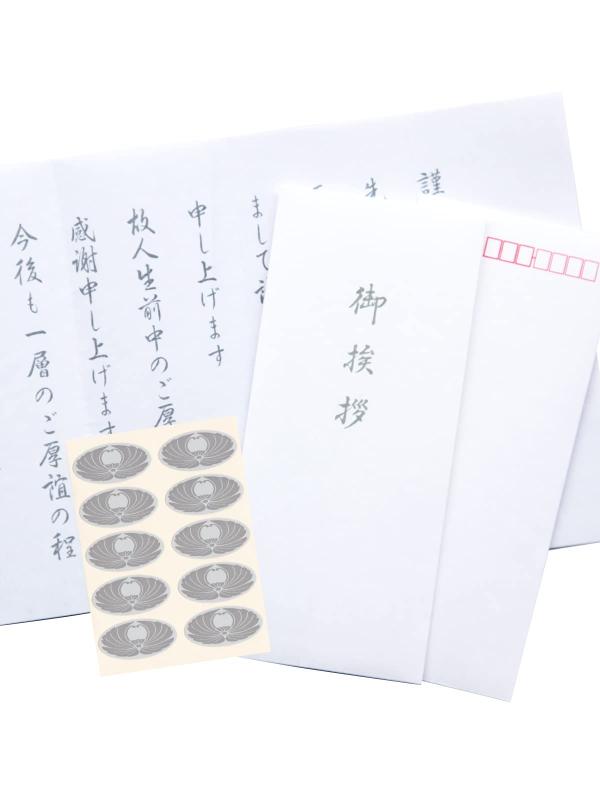 謹
先
まして
申し上げます
故人生前中のご厚
感謝申し上げます
今後も一層のご厚誼の程
御挨拶